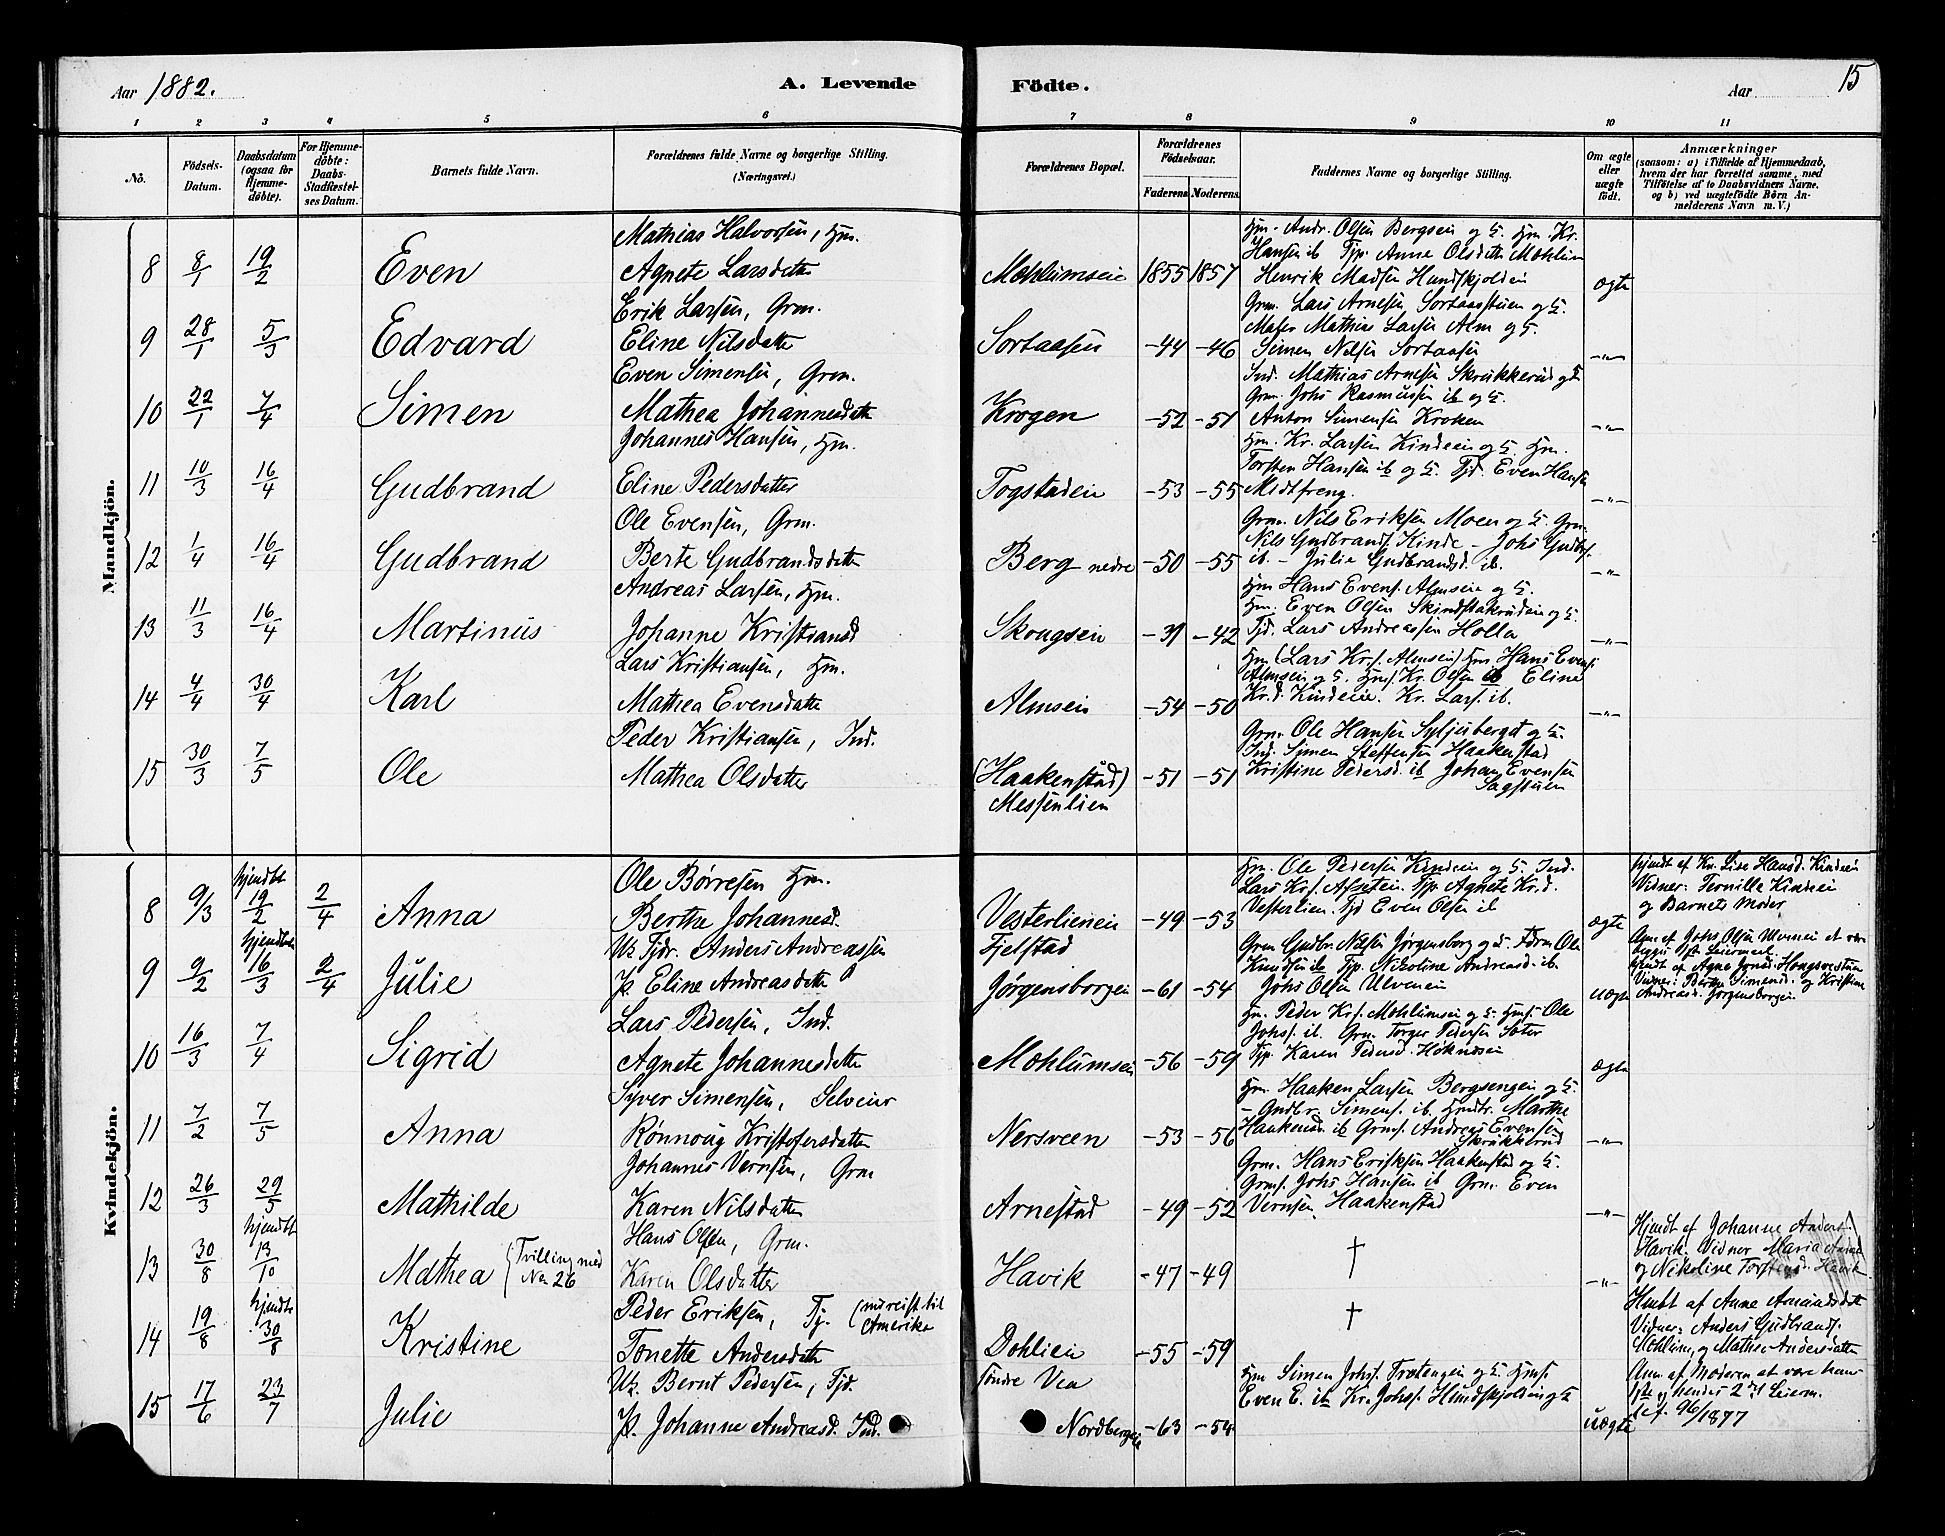 Aar 1882. A. Levende Födte. Aar 15
1 2 3 4 5 6 7 8 9 10 11
No. Födsels-Datum. Daabsdatum (ogsaa for Hjemme-döbte). For Hjemme-döbte: Daabs-Stadfæstel-ses Datum. Barnets fulde Navn. Forældrenes fulde Navne og borgerlige Stilling. (Næringsvei.) Forældrenes Bopæl. Forældrenes Födselsaar. Faderens Moderens. Faddernes Navne og borgerlige Stilling. Om ægte eller uægte födt. Anmærkninger (saasom: a) i Tilfælde af Hjemmedaab, hvem der har forrettet samme, med Tilföielse af to Daabsvidners Navne, og b) ved uægtefödte Börn Anmelderens Navn m. V.)
Mandkjön.
Mathias Halvorsen, Hm. Hm. Andr. Olsen Bergseie og h. Hm. Kr.
8 8/1 19/2 Even Agnete Larsdatter Mohlumseie 1855 1857 Hansen ib Tjp. Anne Olsdatter Mohlum
Henrik Madsen Hundskjoldei ægte
Erik Larsen, Grm. Grm. Lars Arnesen Sortaasstuen og h.
9 28/1 5/3 Edvard Eline Nilsdatter Sortaasen -44 -46 Maler Mathias Larsen Alm og h.
Simen Nilsen Sortaasen -"-
Even Simensen, Grm. Ind. Mathias Arnesen Skrukkerud og h
10 22/1 7/4 Simen Mathea Johannesdatter Krogen -52 -51 Grm. Johs Rasmussen ib og h.
Anton Simensen Kroken -"-
Johannes Hansen, Hm. Hm. Kr. Larsen Kindeeie og h. Hm.
11 10/3 16/4 Gudbrand Eline Pedersdatter Togstadeie -53 -55 Torsten Hansen ib og h. Tjd. Even Hansen
Midtfreng. -"-
Ole Evensen, Grm. Grm. Nils Eriksen Moen og h. Grm.
12 1/4 16/4 Gudbrand Berte Gudbrandsdatter Berg nedre -50 -55 Nils Gudbrands. Kinde - Johs Gudbs.
ib. - Julie Gudbrandsd. ib. -"-
Andreas Larsen, Hm. Hm Hans Evens. Almseie og h.
13 11/3 16/4 Martinus Johanne Kristiansd Skougseie -39 -42 Hm. Even Olsen Skindstakrudeie og h.
Tjd. Lars Andreassen Holla -"-
Lars Kristiansen, Hm. Hm (Lars Krs. Almseie) Hm. Hans Evens.
14 4/4 30/4 Karl Mathea Evensdatter Almseie -54 -50 Almseie og h. Hms. Kr. Olsen ib Eline
Kr.d. Kindeeie. Kr. Lars. ib. -"-
Peder Kristiansen, Ind. Grm. Ole Hansen Syljuberget og h.
15 30/3 7/5 Ole Mathea Olsdatter (Haakenstad) Messenlien -51 -51 Ind. Simen Steffensen Haakenstad
Kristine Pedersd. ib Johan Evensen
Sagstuen
Kvindekjön.
Ole Børresen Hm. Hm. Ole Pedersen Kindeeie og h. Ind. hjemdt af Kn. Lise Hansd. Kindeeie
8 9/3 hjemdbt 19/2 2/4 Anna Berthe Johannesd. Vesterlieneie -49 -53 Lars Krs. Vidner: Pernille Kindeeie
Vesterlien. Tjd Even Olsen ib ægte og Barnets Moder
Uz. Tjdr. Anders Andreassen Fjelstad Grm Gudbr. Nilsen Jørgensborg og h. Ole Anm. af Johs Olsen Ulveneie at være
9 9/2 hjemdbt 16/3 2/4 Julie P. Eline Andreasdatter Jørgensborgeie -61 -54 Knudsen ib Tjp. Nikoline Andreasd. ib.
Johs Olsen Ulveneie uægte Vidner: Berthe Simensd. og Kristine Andreasd. Jørgensborgeie
Lars Pedersen, Ind. Hm. Peder Krs. Mohlumseie og h. Hms. Ole
10 16/3 7/4 Sigrid Agnete Johannesdatter Mohlumseie -56 -59 Johs. ib. Grm. Torger Pedersen Sæter
Tjp. Karen Pedersd. ægte
Syver Simensen, Selveier Hm. Haaken Larsen Bergsengeie og h
11 7/2 7/5 Anna Rønnoug Kristofersdatter Nersveen -53 -56 - Gudbr. Simens. ib. Marthe
Haakensd. ib Grms. Andreas Evensen
Skrukkerud -"-
Johannes Vernsen, Grm Grm. Hans Eriksen Haakenstad og h.
12 26/3 29/5 Mathilde Karen Nilsdatter Arnestad -49 -52 Grms. Johs Hansen ib Grm. Even
Vernsen Haakenstad -"-
Hans Olsen, Grm. Hjemdt af Johanne Anders.
13 30/8 hjemdt 13/10 Mathea (Tvilling med No 26 Karen Olsdatter Havik -47 -49 † -"- Havik. Vidner Maria
og Nikoline Torstensd. Havik
Peder Eriksen, Tj. (nu reist til Amerika Hmbt af Anne Amundsdatter
14 19/8 hjemdt 30/8 Kristine Tonette Andersdatter Dohlien -55 -59 † Vidner: Anders Gudbrands.
Mohlum, og Mathea Andersdatter
Uz. Bernt Pedersen, Tjd. søndre Vea Hm Simen Johs. Trætengeie og h. Hms. Anm. af Moderen at være hans
15 17/6 23/7 Julie P. Johanne Andreasd. Ind. Nordbergeie -63 -54 Even E. ib Kr. Johs. Hundskjoldeie og h uægte 1ste og hendes 2det Leierm.
cf. 96/1877